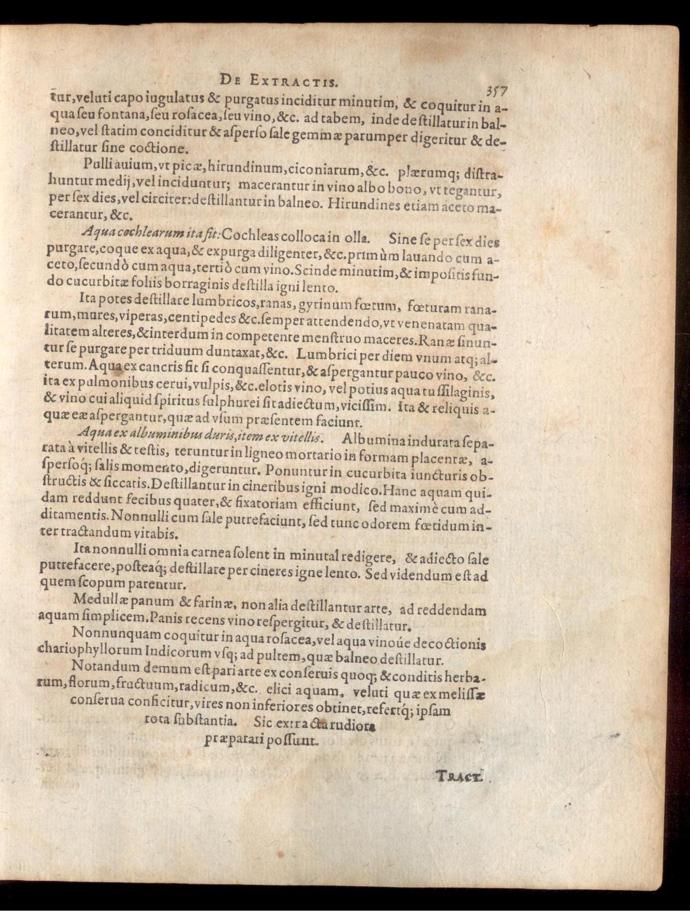 DE EXTRACTIS.
357
tur, veluti capo iugulatus & purgatus inciditur minutim, & coquitur in a-
qua seu fontana, seu rosacea, seu vino, &c. ad tabem, inde destillatur in bal-
neo, vel statim conciditur & asperso sale gemmæ parumper digeritur & de-
stillatur sine coctione.
Pulli auium, vt picæ, hirundinum, ciconiarum, &c. plærumq; distra-
huntur medij, vel inciduntur; macerantur in vino albo bono, vt tegantur,
per sex dies, vel circiter: destillantur in balneo. Hirundines etiam aceto ma-
cerantur, &c.
Aqua cochlearum ita fit: Cochleas colloca in olla. Sine se per sex dies
purgare, coque ex aqua, & expurga diligenter, &c. primùm lauando cum a-
ceto, secundò cum aqua, tertiò cum vino. Scinde minutim, & impositis fun-
do cucurbitæ foliis borraginis destilla igni lento.
Ita potes destillare lumbricos, ranas, gyrinum fœtum, fœturam rana-
rum, mures, viperas, centipedes &c. semper attendendo, vt venenatam qua-
litatem alteres, & interdum in competente menstruo maceres. Ranæ sinun-
tur se purgare per triduum duntaxat, &c. Lumbrici per diem vnum atq; al-
terum. Aqua ex cancris fit si conquassentur, & aspergantur pauco vino, &c.
ita ex pulmonibus cerui, vulpis, &c. elotis vino, vel potius aqua tussilaginis,
& vino cui aliquid spiritus sulphurei sit adiectum, vicissim. Ita & reliquis a-
quæ eæ aspergantur, quæ ad vsum præsentem faciunt.
Aqua ex albuminibus duris, item ex vitellis. Albumina indurata sepa-
rata à vitellis & testis, teruntur in ligneo mortario in formam placentæ, a-
spersoq; salis momento, digeruntur. Ponuntur in cucurbita iuncturis ob-
structis & siccatis. Destillantur in cineribus igni modico. Hanc aquam qui-
dam reddunt fecibus quater, & fixatoriam efficiunt, sed maximè cum ad-
ditamentis. Nonnulli cum sale putrefaciunt, sed tunc odorem fœtidum in-
ter tractandum vitabis.
Ita nonnulli omnia carnea solent in minutal redigere, & adiecto sale
putrefacere, posteaq; destillare per cineres igne lento. Sed videndum est ad
quem scopum parentur.
Medullæ panum & farinæ, non alia destillantur arte, ad reddendam
aquam simplicem. Panis recens vino respergitur, & destillatur.
Nonnunquam coquitur in aqua rosacea, vel aqua vinoúe decoctionis
chariophyllorum Indicorum vsq; ad pultem, quæ balneo destillatur.
Notandum demum est pari arte ex conseruis quoq; & conditis herba-
rum, florum, fructuum, radicum, &c. elici aquam. veluti quæ ex melissæ
conserua conficitur, vires non inferiores obtinet, refertq́; ipsam
rota substantia. Sic extracta rudiora
præparari possunt.
TRACT.